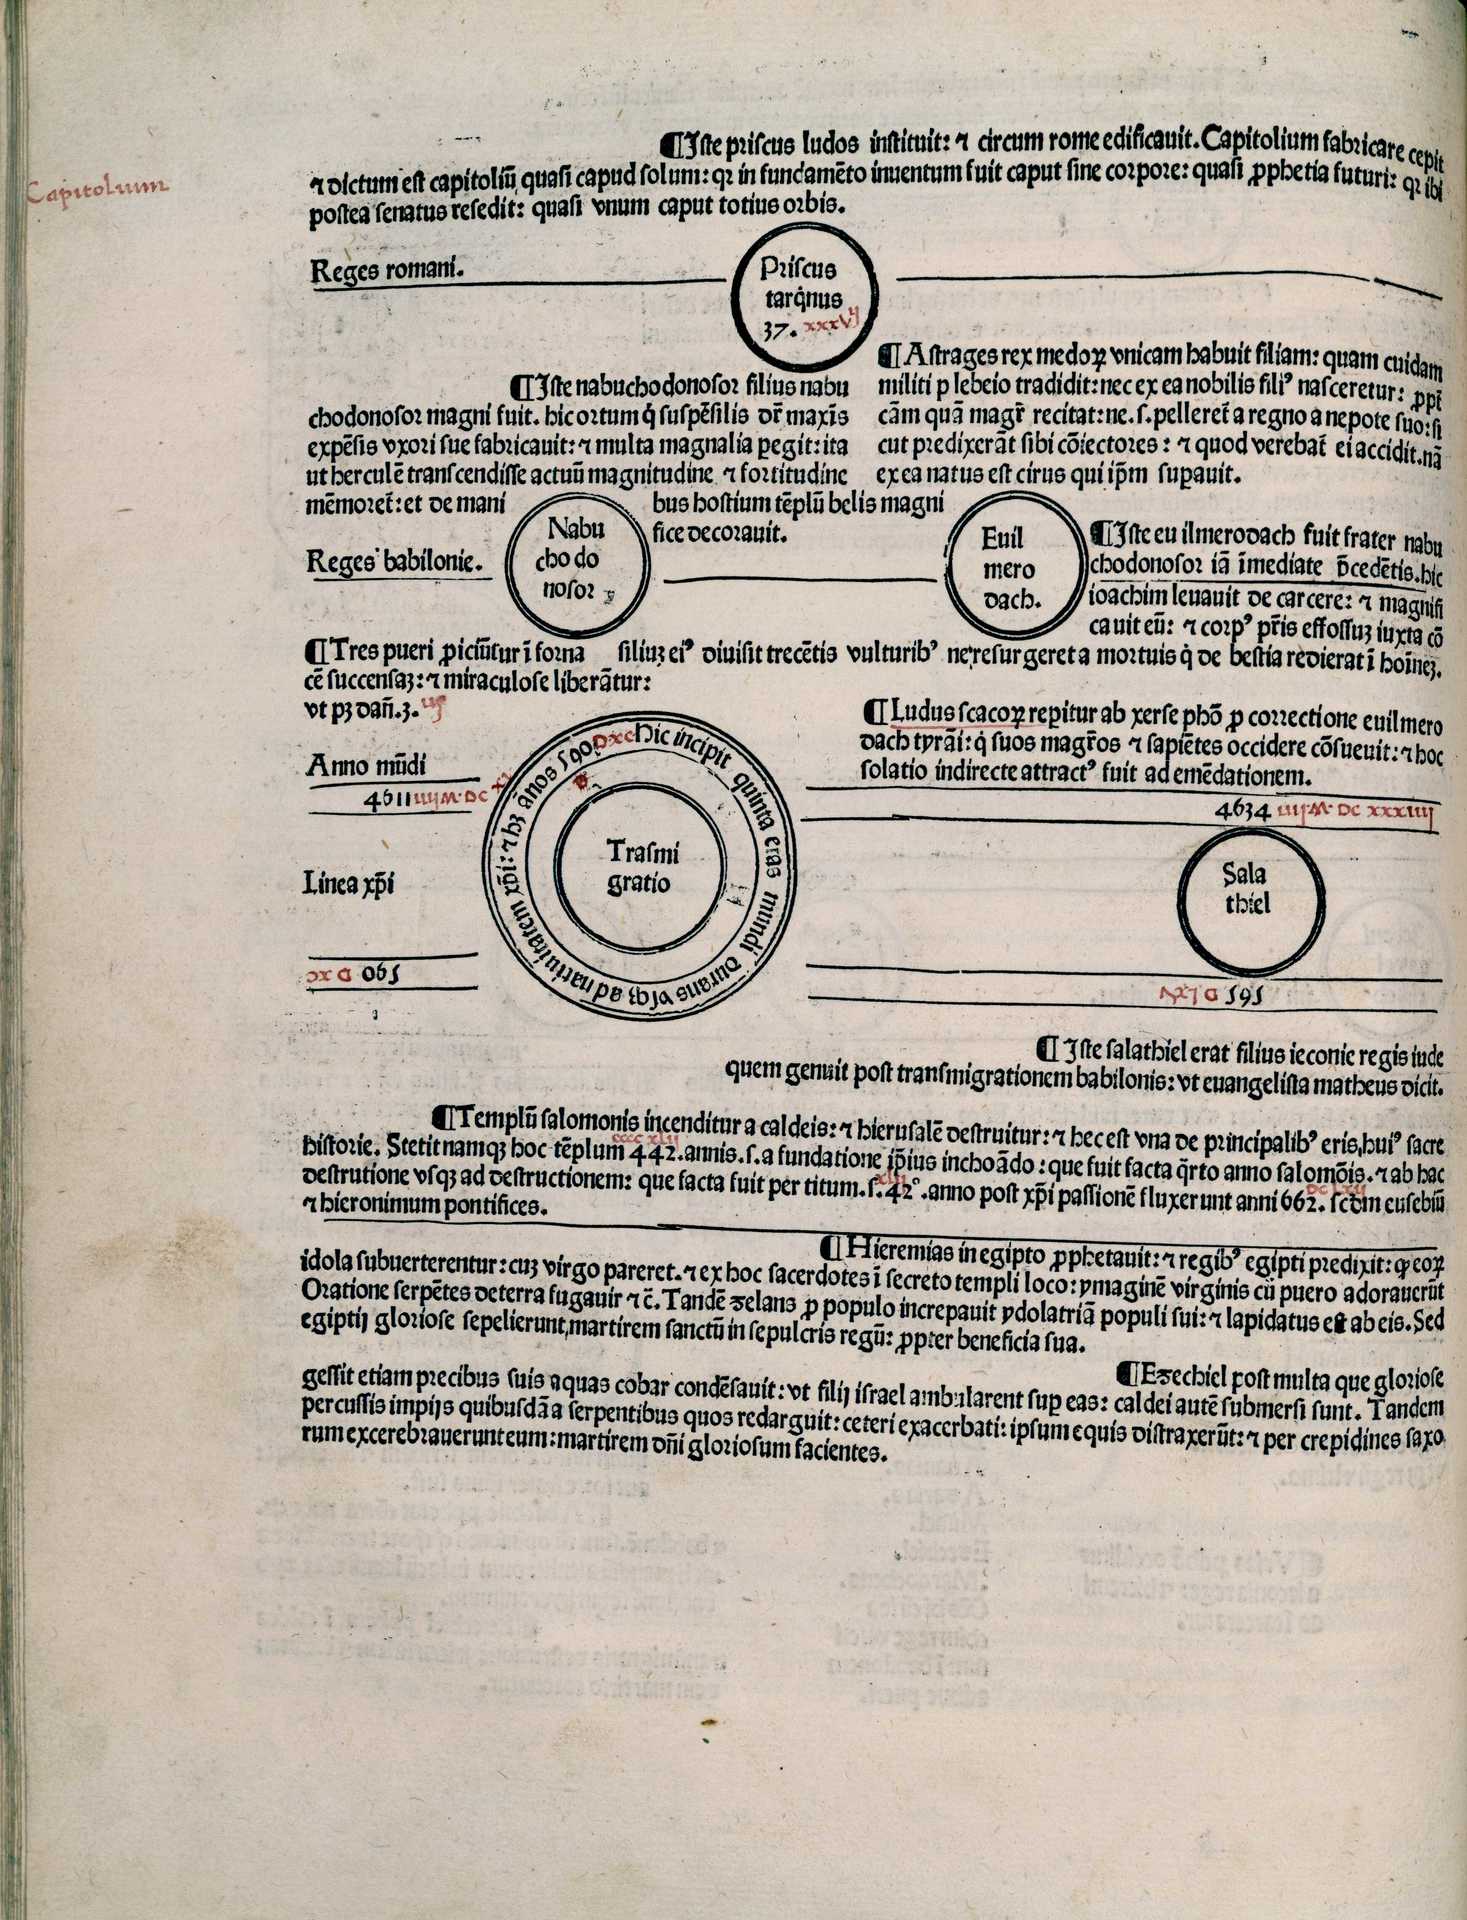 Capitolium
¶Iste priscus ludos instituit: ⁊ circum rome edificauit. Capitolium fabricare cepit
⁊ dictum est capitoliū quasi capud solum: qꝛ in fundamēto inuentum fuit caput sine corpore: quasi ꝓphetia futuri: qꝛ ibi
postea senatus resedit: quasi vnum caput totius orbis.
Reges romani.
Priscus
tarq̇nus
37. xxxvij
¶Iste nabuchodonosor filius nabu
chodonosor magni fuit. hic ortum q̇ suspēsilis dr̄ maxīs
expēsis vxori sue fabricauit: ⁊ multa magnalia ꝑegit: ita
ut herculē transcendisse actuū magnitudine ⁊ fortitudine
mēmoret̄: et de mani
bus hostium tēplū belis magni
fice decorauit.
¶Astrages rex medoꝝ vnicam habuit filiam: quam cuidam
militi plebeio tradidit: nec ex ea nobilis filiꝰ nasceretur: ꝓpt̄
cām quā magr̄ recitat: ne. s. pelleret̄ a regno a nepote suo: si
cut predixerāt sibi cōiectores: ⁊ quod verebat̄ ei accidit. nā
ex ea natus est cirus qui ip̄m suꝑauit.
Reges babilonie.
Nabu
chodo
nosor
Euil
mero
dach.
¶Iste euilmerodach fuit frater nabu
chodonosor iā īmediate p̄cedētis. hic
ioachim leuauit de carcere: ⁊ magnifi
cauit eū: ⁊ corpꝰ pr̄is effossuꝫ iuxta cō
¶Tres pueri ꝓiciūtur ī forna
siliuꝫ eiꝰ diuisit trecētis vulturibꝰ ne resurgeret a mortuis q̇ de bestia redierat ī hoīneꝫ.
cē succensaꝫ: ⁊ miraculose liberātur:
vt pꝫ dañ. 3. iij
¶Ludus scacoꝝ reꝑitur ab xerse phō ꝓ correctione euilmero
dach tyrāi: q̇ suos magr̄os ⁊ sapiētes occidere cōsueuit: ⁊ hoc
solatio indirecte attractꝰ fuit ad emēdationem.
Anno mūdi
4611 iiijM·DC xj
4634 iiijM·DC xxxiiij
Hic incipit quinta etas mundi durans vsqꝫ ad natiuitatem xp̄i: ⁊ hꝫ ānos 590. Dxc
Trasmi
gratio
Linea xp̄i
Sala
thiel
590 D xc
¶Iste salathiel erat filius ieconie regis iude
quem genuit post transmigrationem babilonis: vt euangelista matheus dicit.
¶Templū salomonis incenditur a caldeis: ⁊ hierusalē destruitur: ⁊ hec est vna de principalibꝰ eris, huiꝰ sacre
historie. Stetit namqꝫ hoc tēplum 442. annis. s. a fundatione ip̄ius inchoādo: que fuit facta q̄rto anno salomōis. ⁊ ab hac
cccc xlij
destrutione vsqꝫ ad destructionem: que facta fuit per titum. s. 42°. anno post xp̄i passionē fluxerunt anni 662. scd̄m eusebiū
xlij DC lxij
⁊ hieronimum pontifices.
¶Hieremias in egipto ꝓphetauit: ⁊ regibꝰ egipti predixit: ꝙ eoꝝ
idola subuerterentur: cuꝫ virgo pareret. ⁊ ex hoc sacerdotes ī secreto templi loco: ymaginē virginis cū puero adorauerūt
Oratione serpētes de terra fugauit ⁊ c̄. Tandē zelans ꝓ populo increpauit ydolatriā populi sui: ⁊ lapidatus est ab eis. Sed
egiptij gloriose sepelierunt, martirem sanctū in sepulcris regū: ꝓpter beneficia sua.
¶Ezechiel post multa que gloriose
gessit etiam precibus suis aquas cobar condēsauit: vt filij israel ambularent suꝑ eas: caldei autē submersi sunt. Tandem
percussis impijs quibusdā a serpentibus quos redarguit: ceteri exacerbati: ipsum equis distraxerūt: ⁊ per crepidines saxo
rum excerebrauerunt eum: martirem dn̄i gloriosum facientes.